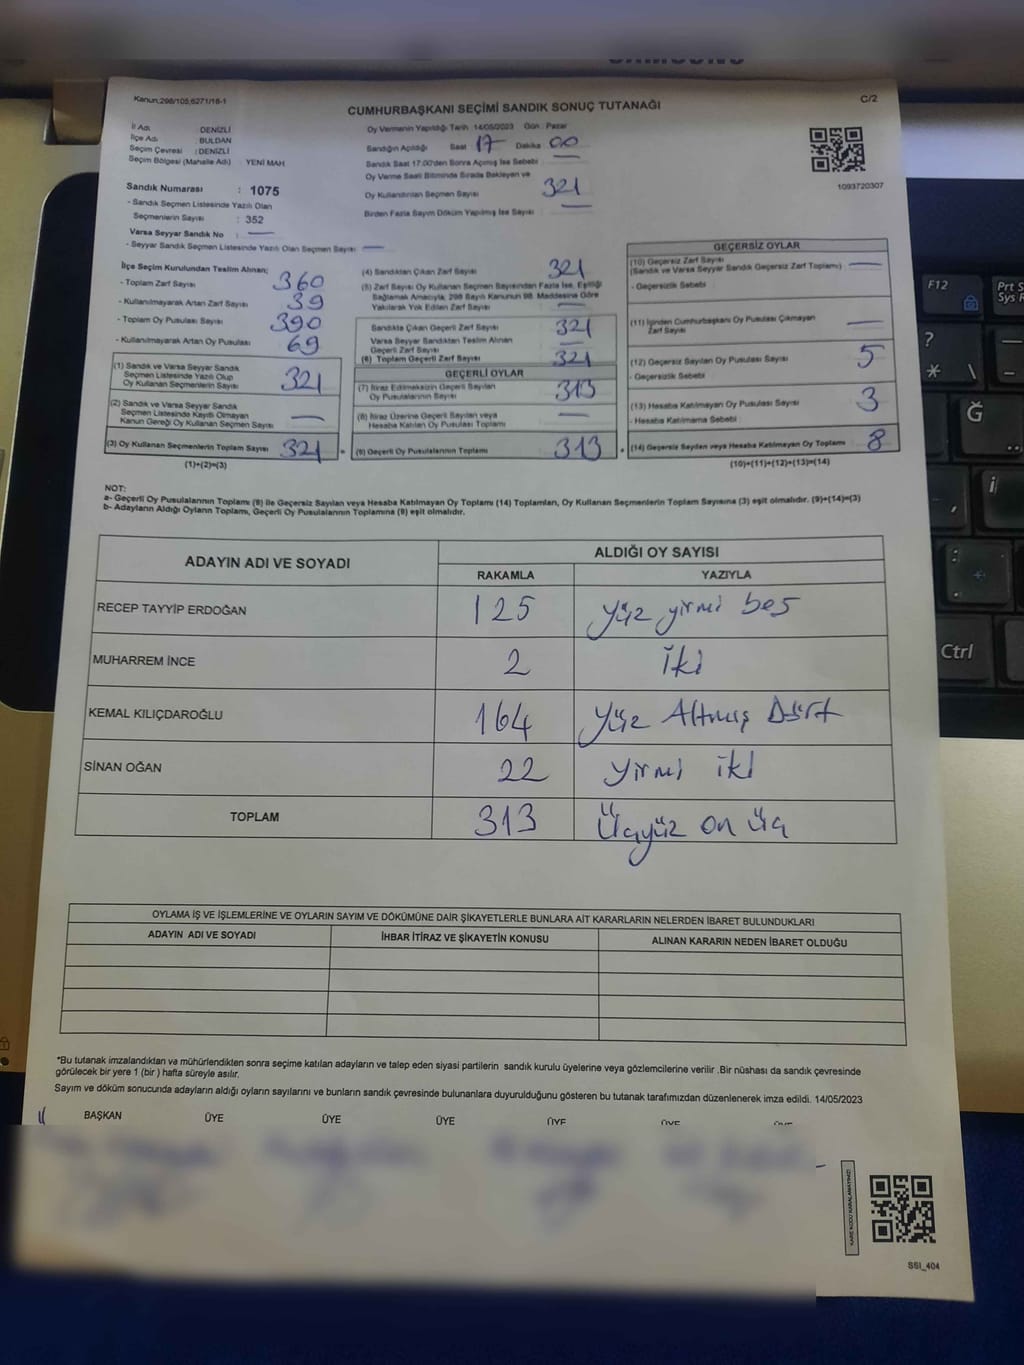 SAMSUNG
Kanun;298/105,6271/18-1
CUMHURBAŞKANI SEÇİMİ SANDIK SONUÇ TUTANAĞI
C/2
İl Adı : DENİZLİ
İlçe Adı : BULDAN
Seçim Çevresi : DENİZLİ
Seçim Bölgesi (Mahalle Adı) : YENİ MAH.
Sandık Numarası : 1075
- Sandık Seçmen Listesinde Yazılı Olan
Seçmenlerin Sayısı : 352
Varsa Seyyar Sandık No : —
- Seyyar Sandık Seçmen Listesinde Yazılı Olan Seçmen Sayısı : —
Oy Vermenin Yapıldığı Tarih 14/05/2023 Gün : Pazar
Sandığın Açıldığı Saat 17 Dakika 00
Sandık Saat 17.00'den Sonra Açılmış İse Sebebi : —
Oy Verme Saati Bitiminde Sırada Bekleyen ve
Oy Kullandırılan Seçmen Sayısı 321
Birden Fazla Sayım Döküm Yapılmış İse Sayısı : —
1093720307
İlçe Seçim Kurulundan Teslim Alınan;
- Toplam Zarf Sayısı : 360
- Kullanılmayarak Artan Zarf Sayısı : 39
- Toplam Oy Pusulası Sayısı : 390
- Kullanılmayarak Artan Oy Pusulası : 69
(1) Sandık ve Varsa Seyyar Sandık
Seçmen Listesinde Yazılı Olup
Oy Kullanan Seçmenlerin Sayısı : 321
(2) Sandık ve Varsa Seyyar Sandık
Seçmen Listesinde Kayıtlı Olmayan
Kanun Gereği Oy Kullanan Seçmen Sayısı : —
(3) Oy Kullanan Seçmenlerin Toplam Sayısı : 321
(1)+(2)=(3)
(4) Sandıktan Çıkan Zarf Sayısı 321
(5) Zarf Sayısı Oy Kullanan Seçmen Sayısından Fazla İse, Eşitliği
Sağlamak Amacıyla, 298 Sayılı Kanunun 98. Maddesine Göre
Yakılarak Yok Edilen Zarf Sayısı : —
Sandıkta Çıkan Geçerli Zarf Sayısı : 321
Varsa Seyyar Sandıktan Teslim Alınan
Geçerli Zarf Sayısı : —
(6) Toplam Geçerli Zarf Sayısı : 321
GEÇERLİ OYLAR
(7) İtiraz Edilmeksizin Geçerli Sayılan
Oy Pusulalarının Sayısı : 313
(8) İtiraz Üzerine Geçerli Sayılan veya
Hesaba Katılan Oy Pusulası Toplamı : —
(9) Geçerli Oy Pusulalarının Toplamı : 313
GEÇERSİZ OYLAR
(10) Geçersiz Zarf Sayısı
(Sandık ve Varsa Seyyar Sandık Geçersiz Zarf Toplamı) : —
- Geçersizlik Sebebi :
(11) İçinden Cumhurbaşkanı Oy Pusulası Çıkmayan
Zarf Sayısı : —
(12) Geçersiz Sayılan Oy Pusulası Sayısı : 5
- Geçersizlik Sebebi :
(13) Hesaba Katılmayan Oy Pusulası Sayısı : 3
- Hesaba Katılmama Sebebi :
(14) Geçersiz Sayılan veya Hesaba Katılmayan Oy Toplamı : 8
(10)+(11)+(12)+(13)=(14)
NOT:
a- Geçerli Oy Pusulalarının Toplamı (9) ile Geçersiz Sayılan veya Hesaba Katılmayan Oy Toplamı (14) Toplamları, Oy Kullanan Seçmenlerin Toplam Sayısına (3) eşit olmalıdır. (9)+(14)=(3)
b- Adayların Aldığı Oyların Toplamı, Geçerli Oy Pusulalarının Toplamına (9) eşit olmalıdır.
ADAYIN ADI VE SOYADI
ALDIĞI OY SAYISI
RAKAMLA YAZIYLA
RECEP TAYYİP ERDOĞAN 125 yüz yirmi beş
MUHARREM İNCE 2 iki
KEMAL KILIÇDAROĞLU 164 yüz Altmış Dört
SİNAN OĞAN 22 yirmi iki
TOPLAM 313 Üçyüz on üç
OYLAMA İŞ VE İŞLEMLERİNE VE OYLARIN SAYIM VE DÖKÜMÜNE DAİR ŞİKAYETLERLE BUNLARA AİT KARARLARIN NELERDEN İBARET BULUNDUKLARI
ADAYIN ADI VE SOYADI İHBAR İTİRAZ VE ŞİKAYETİN KONUSU ALINAN KARARIN NEDEN İBARET OLDUĞU
*Bu tutanak imzalandıktan va mühürlendikten sonra seçime katılan adayların ve talep eden siyasi partilerin sandık kurulu üyelerine veya gözlemcilerine verilir .Bir nüshası da sandık çevresinde
görülecek bir yere 1 (bir ) hafta süreyle asılır.
Sayım ve döküm sonucunda adayların aldığı oyların sayılarını ve bunların sandık çevresinde bulunanlara duyurulduğunu gösteren bu tutanak tarafımızdan düzenlenerek imza edildi. 14/05/2023
BAŞKAN ÜYE ÜYE ÜYE ÜYE ÜYE ÜYE
KARE KODU KARALAMAYINIZ!
SSI_404
F12
Prt S
Sys R
?
* \
Ğ
i
Ctrl